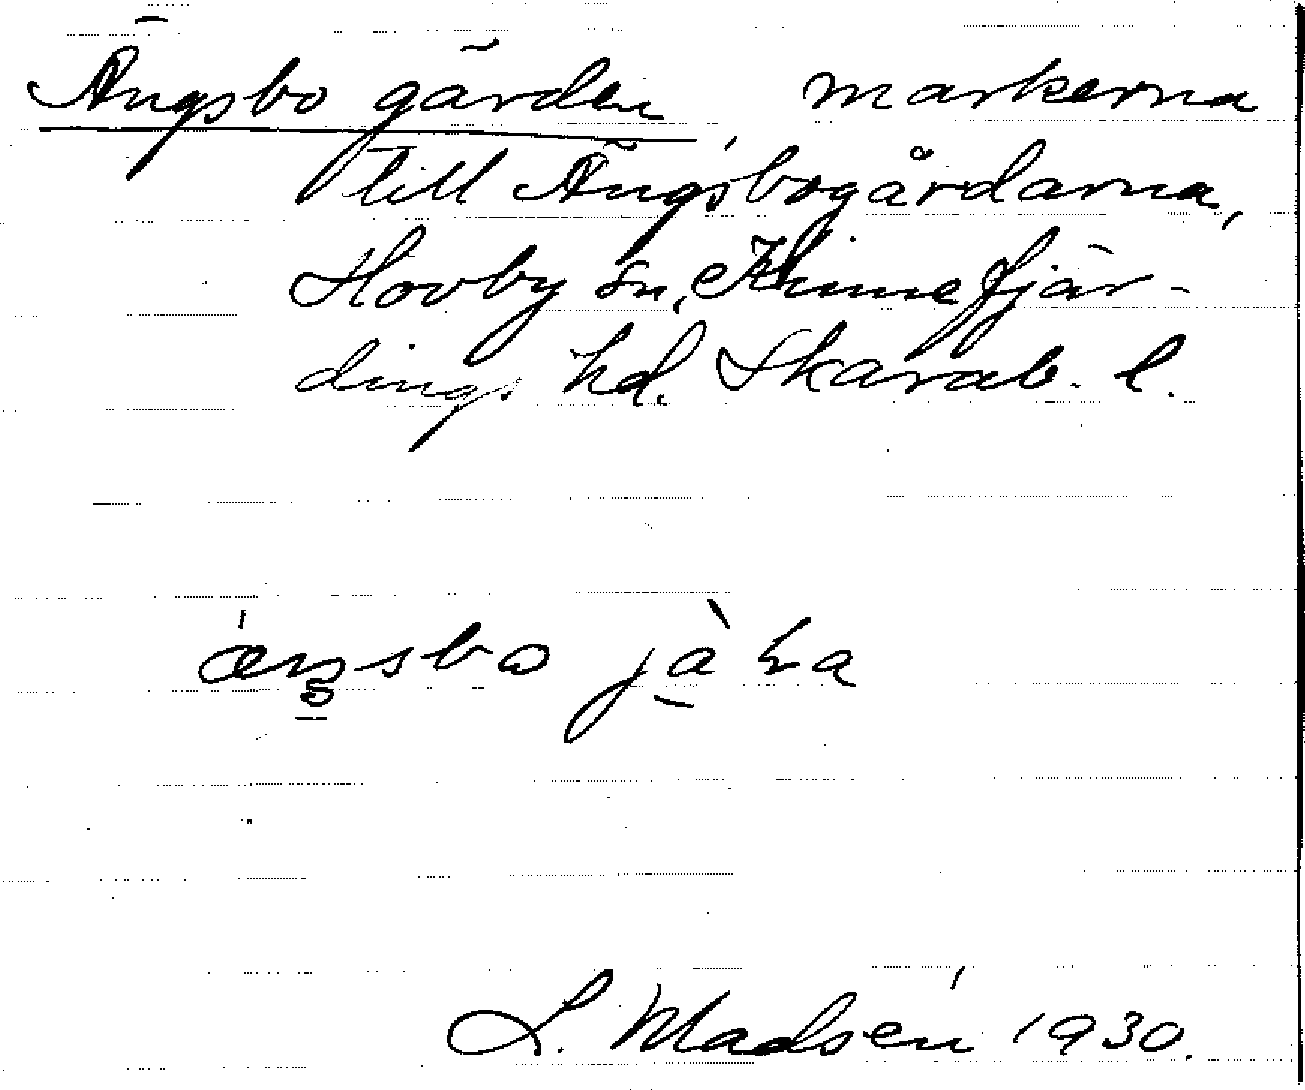 Ängsbo gärden, markerna
till Ängsbogårdarna,
Hovby sn, Kinnefjär-
dings hd. Skarab. l.
L. Madsén 1930.